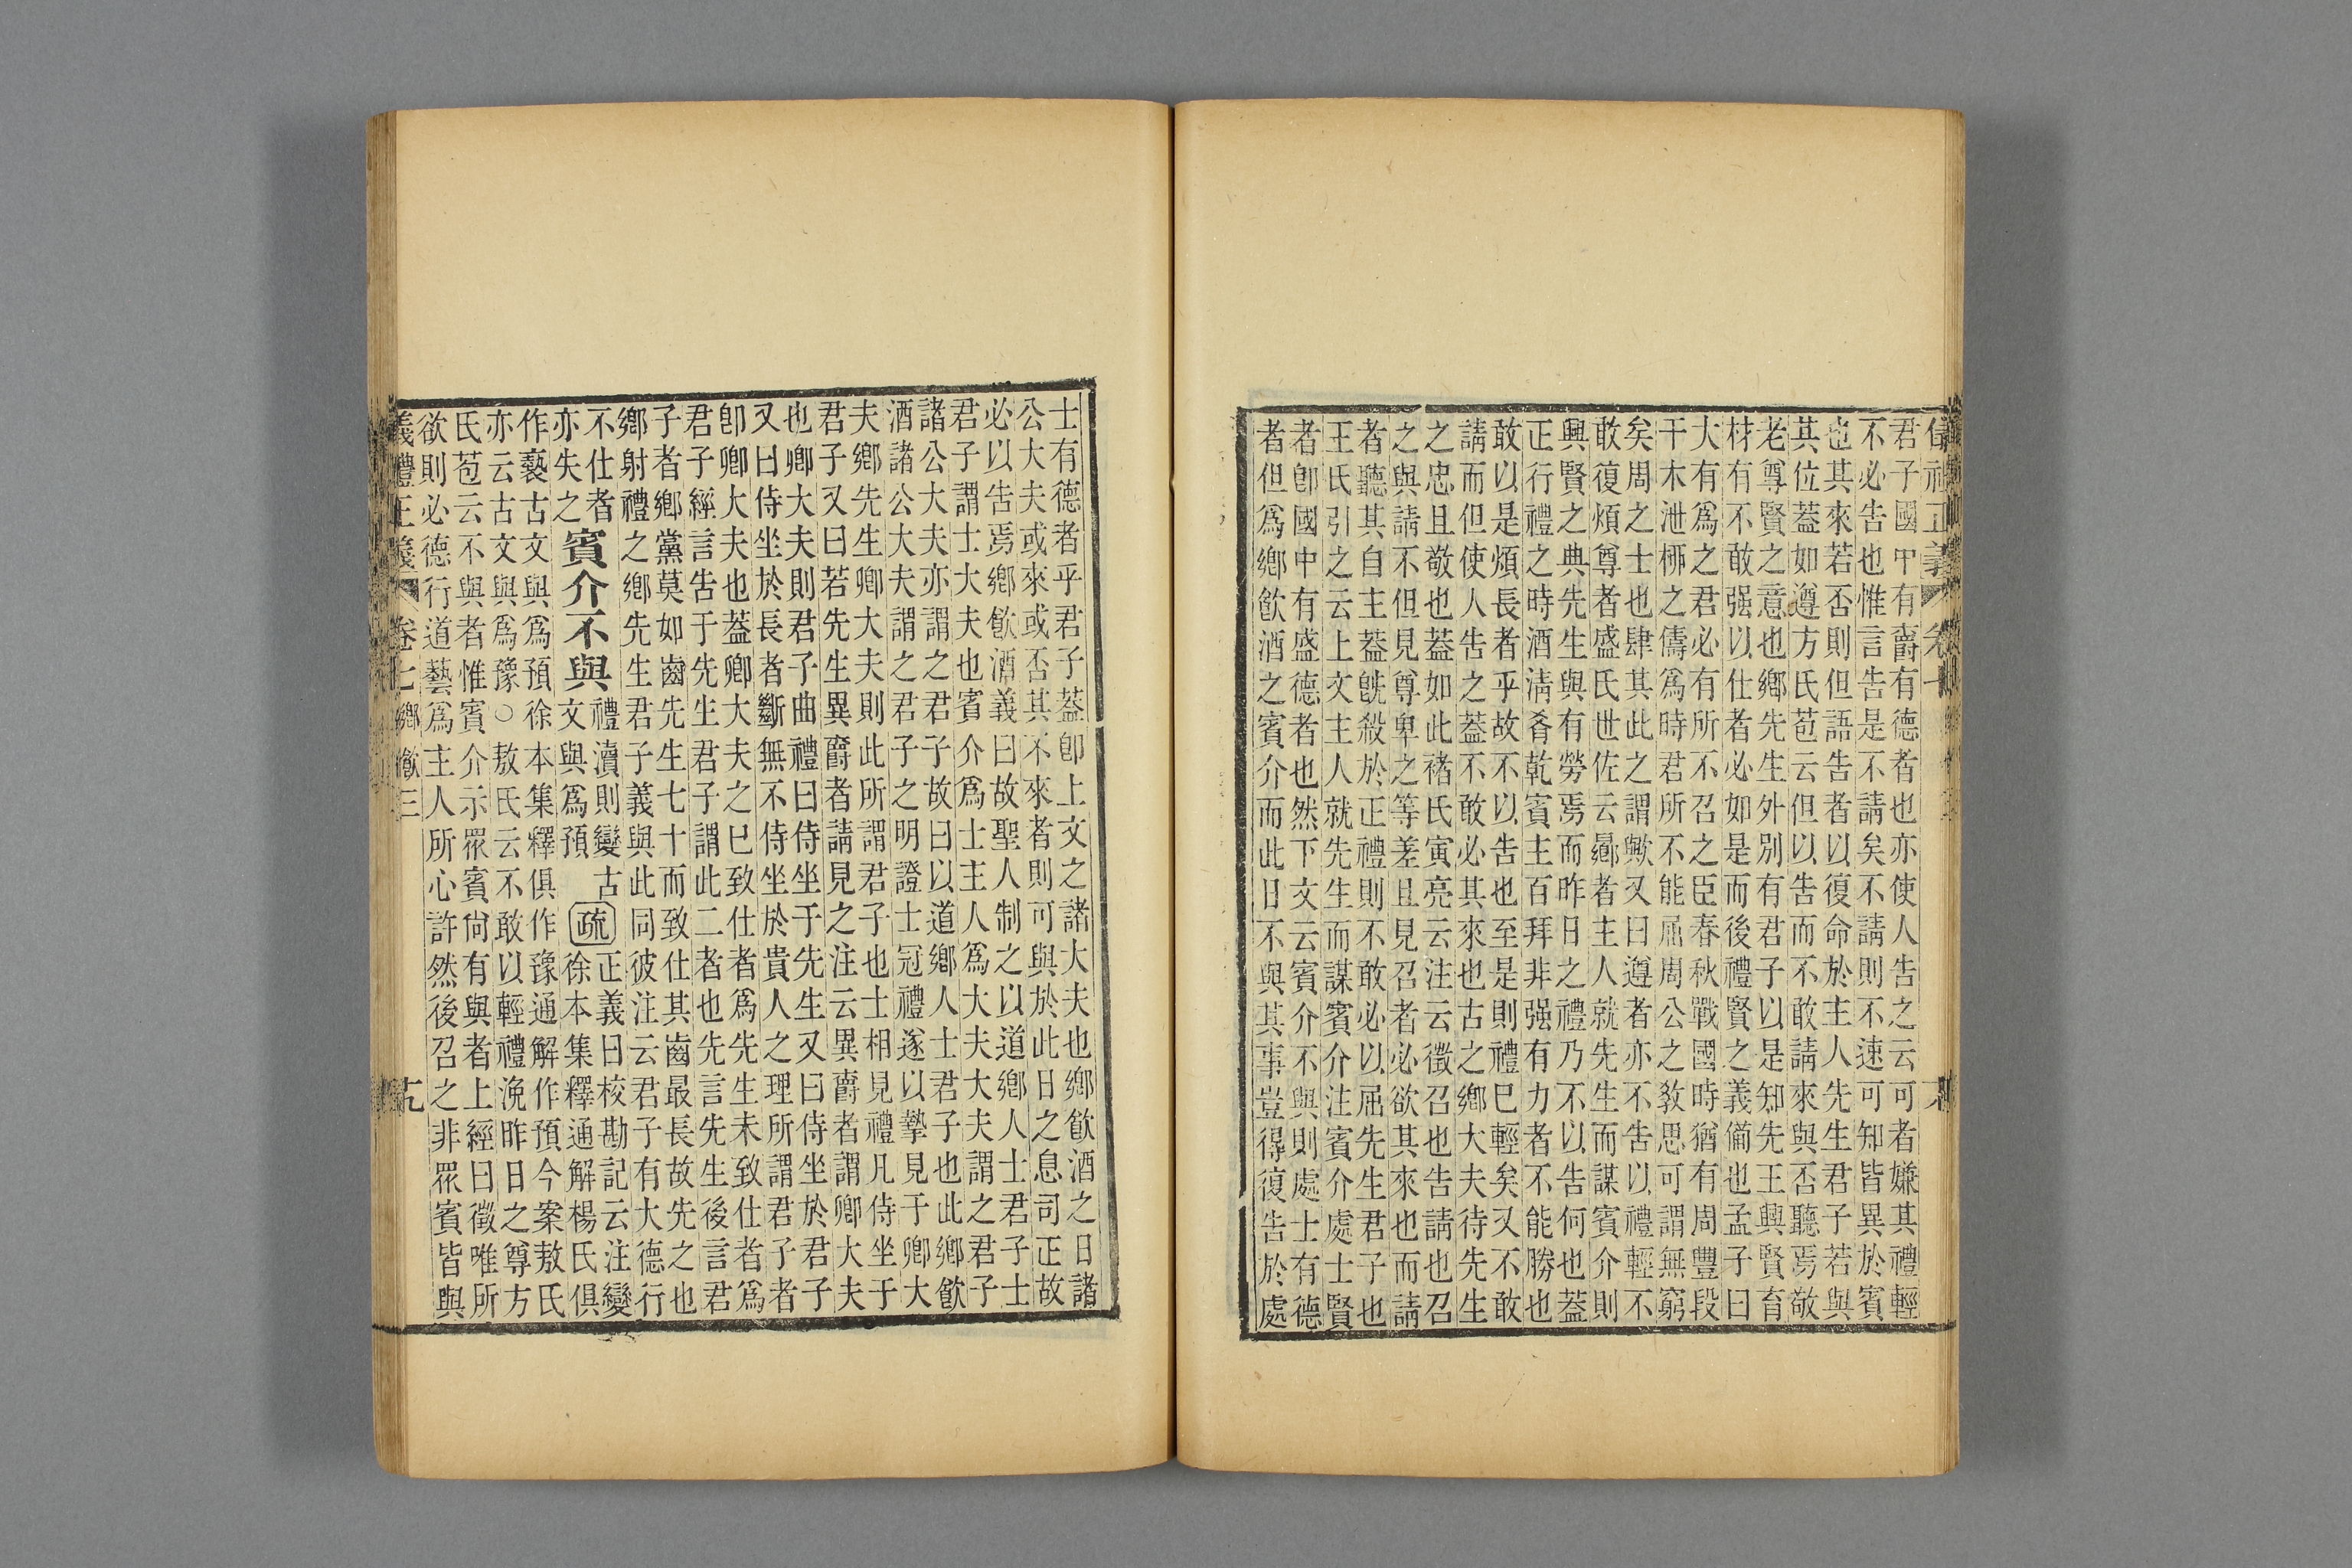 儀禮正義 卷七
君子國中有爵有德者也亦使人告之云可者嫌其禮輕
不必告也惟言告是不請矣不請則不速可知皆異於賓
也其來若否則但語告者以復命於主人先生君子若與
其位蓋如遵方氏苞云但以告而不敢請來與否聽焉敬
老尊賢之意也鄉先生外別有君子以是知先王興賢育
材有不敢强以仕者必如是而後禮賢之義備也孟子曰
大有爲之君必有所不召之臣春秋戰國時猶有周豐段
干木泄桺之儔爲時君所不能屈周公之敎思可謂無窮
矣周之士也肆其此之謂歟又曰遵者亦不告以禮輕不
敢復煩尊者盛氏世佐云鄉者主人就先生而謀賓介則
興賢之典先生與有勞焉而昨日之禮乃不以告何也蓋
正行禮之時酒淸肴乾賓主百拜非强有力者不能勝也
敢以是煩長者乎故不以告也至是則禮已輕矣又不敢
請而但使人告之蓋不敢必其來也古之鄉大夫待先生
之忠且敬也蓋如此褚氏寅亮云注云徵召也告請也召
之與請不但見尊卑之等差且見召者必欲其來也而請
者聽其自主蓋旣殺於正禮則不敢必以屈先生君子也
王氏引之云上文主人就先生而謀賓介注賓介處士賢
者卽國中有盛德者也然下文云賓介不與則處士有德
者但爲鄉飮酒之賓介而此日不與其事豈得復告於處
士有德者乎君子蓋卽上文之諸大夫也鄉飮酒之日諸
公大夫或來或否其不來者則可與於此日之息司正故
必以告焉鄉飮酒義曰故聖人制之以道鄉人士君子士
君子謂士大夫也賓介爲士主人爲大夫大夫謂之君子
諸公大夫亦謂之君子故曰以道鄉人士君子也此鄉飮
酒諸公大夫謂之君子之明證士冠禮遂以摯見于卿大
夫鄉先生卿大夫則此所謂君子也士相見禮凡侍坐于
君子又曰若先生異爵者請見之注云異爵者謂卿大夫
也卿大夫則君子曲禮曰侍坐于先生又曰侍坐於君子
又曰侍坐於長者斷無不侍坐於貴人之理所謂君子者
卽卿大夫也蓋卿大夫之已致仕者爲先生未致仕者爲
君子經言告于先生君子謂此二者也先言先生後言君
子者鄉黨莫如齒先生七十而致仕其齒最長故先之也
鄉射禮之鄉先生君子義與此同彼注云君子有大德行
不仕者
亦失之
賓介不與
禮瀆則變古
文與爲預
疏
正義曰校勘記云注變
徐本集釋通解楊氏俱
作褻古文與爲預徐本集釋俱作豫通解作預今案敖氏
亦云古文與爲豫○敖氏云不敢以輕禮浼昨日之尊方
氏苞云不與者惟賓介示眾賓尙有與者上經曰徵唯所
欲則必德行道藝爲主人所心許然後召之非眾賓皆與
義禮正義 卷七 鄉飮三